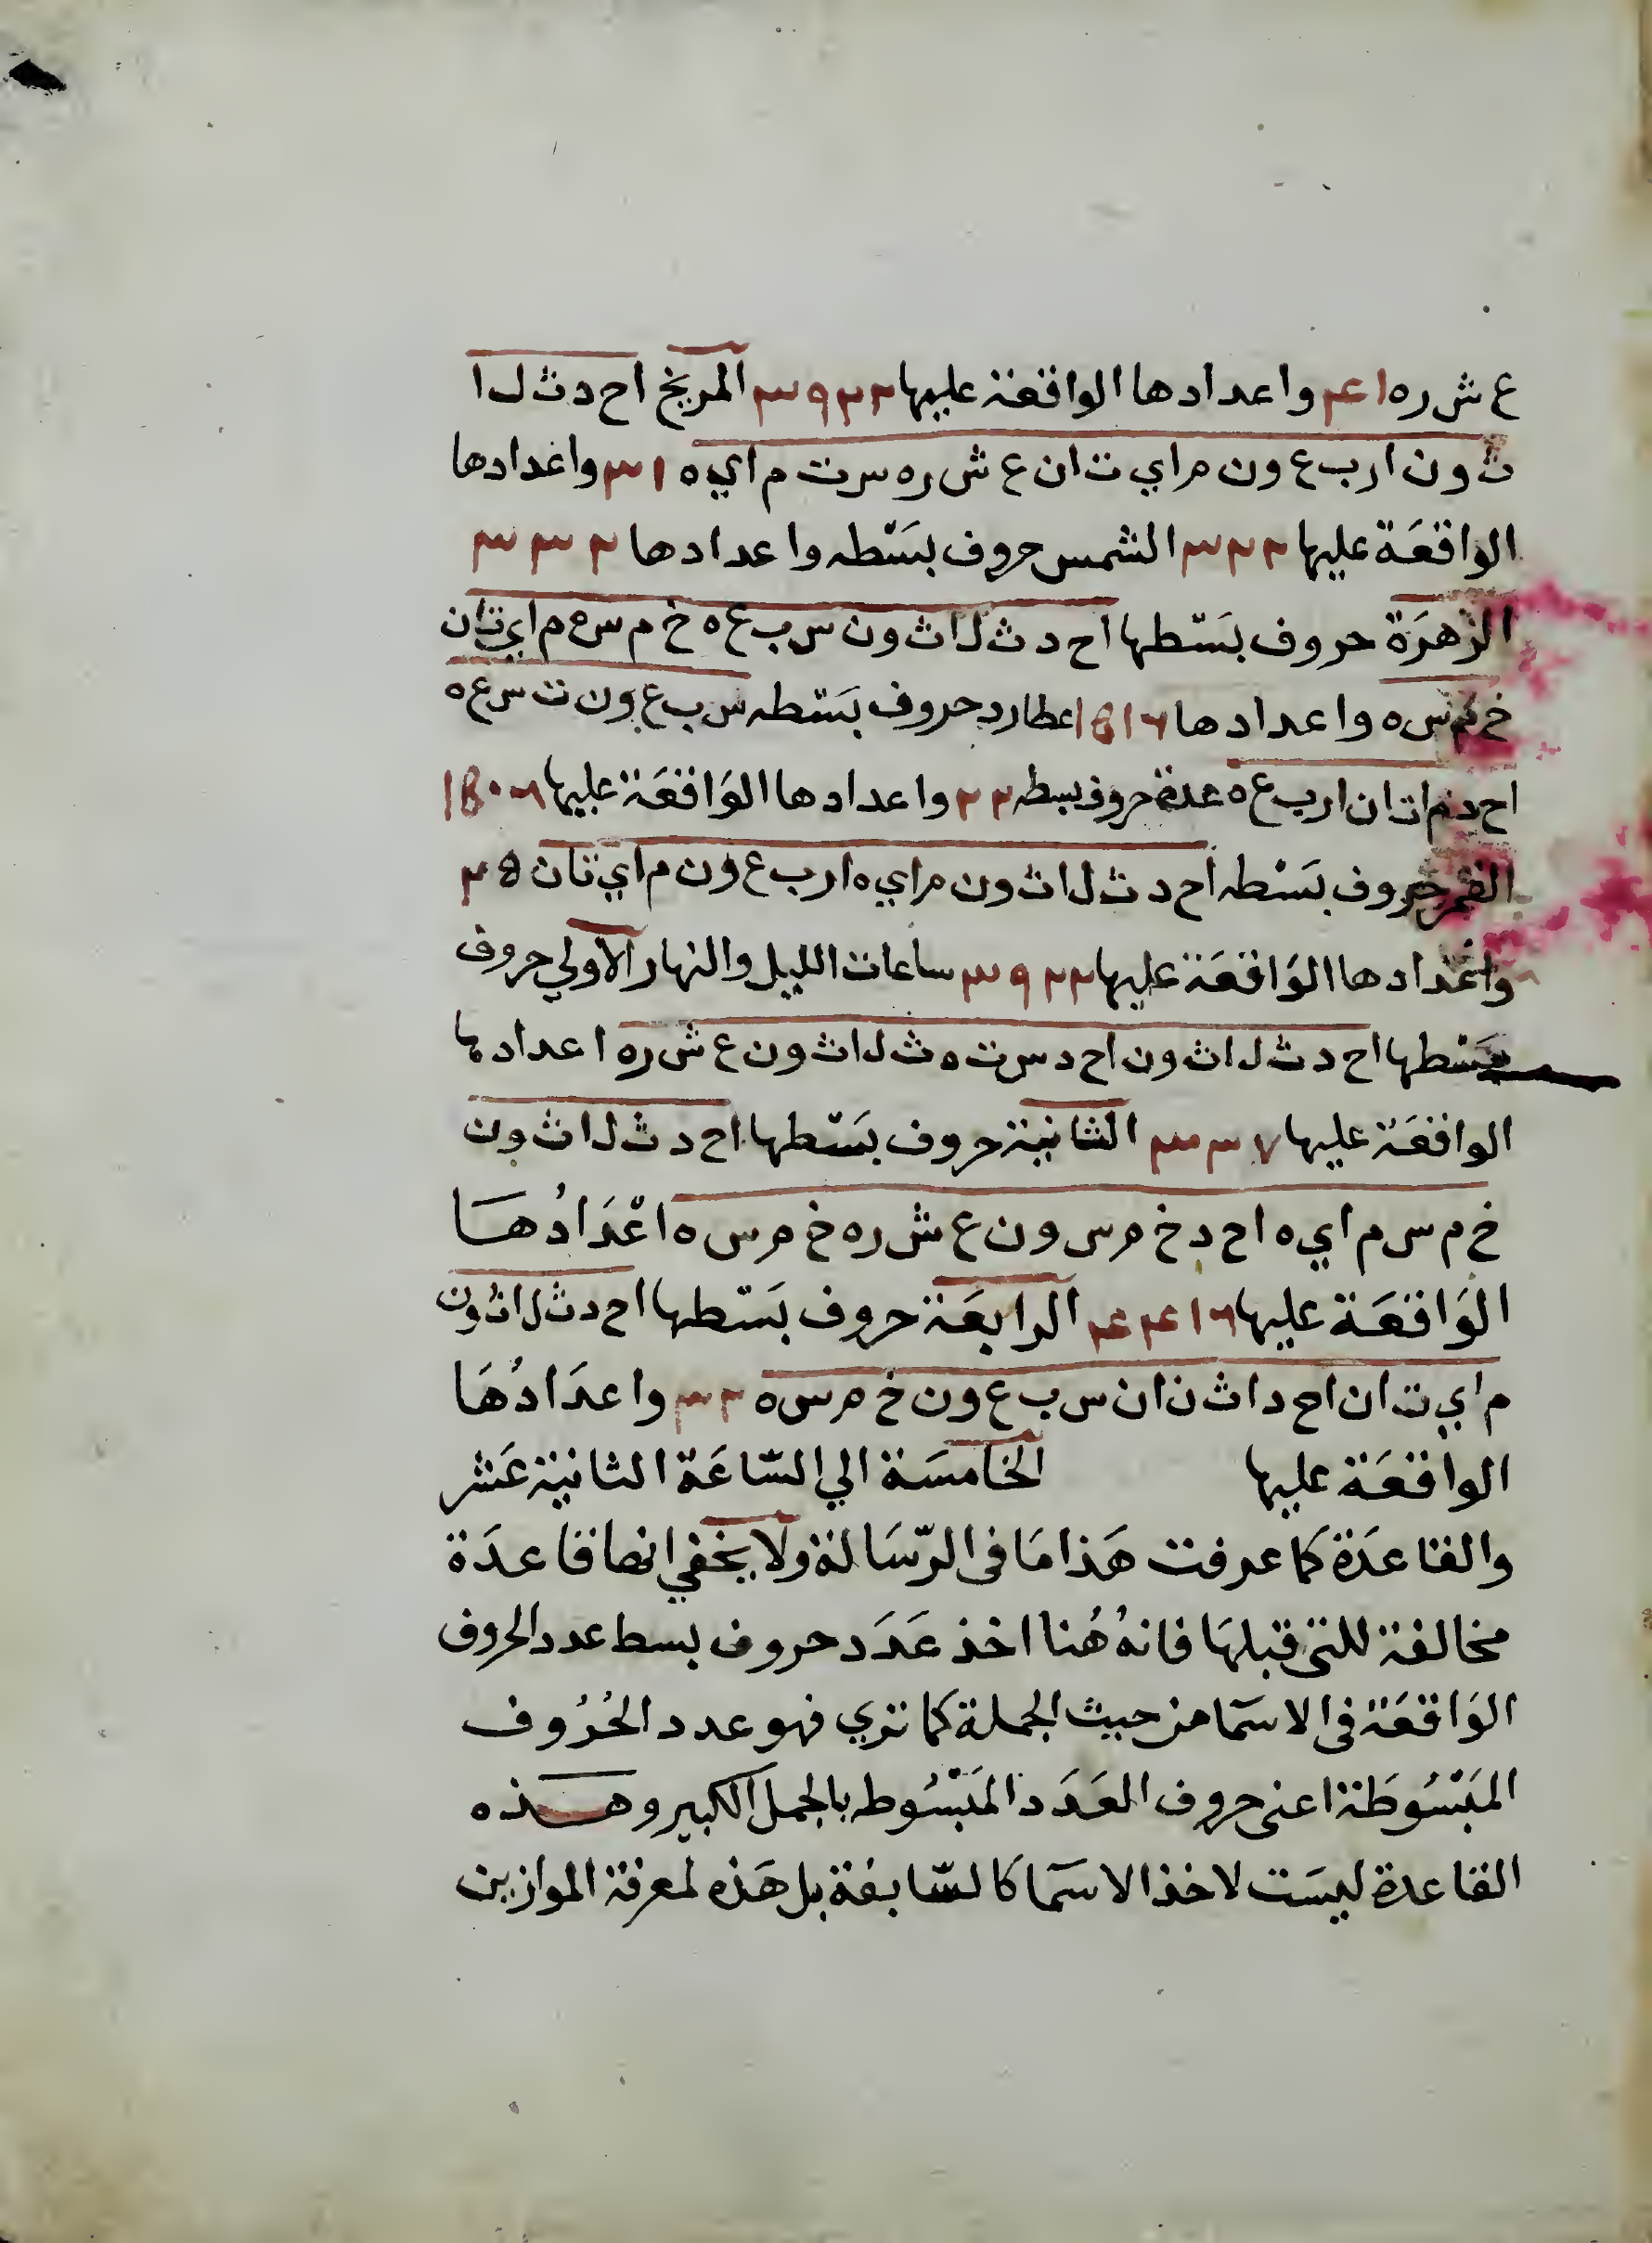 ع ش ر ه ٤١ واعدادها الواقعة عليها ٣٩٢٢ المريخ ا ح د ث ل ا
ث و ن ا ر ب ع و ن م ا ي ت ا ن ع ش ر ه س ت م ا ي ه ٣١ واعدادها
الواقعة عليها ٣٢٢ الشمس حروف بسطه واعدادها ٣٣٢
الزهرة حروف بسطها ا ح د ث ل ا ث و ن س ب ع ه خ م س ه م ا ي ت ا ن
خ م س ه واعدادها ١٥١٦ عطارد حروف بسطه س ب ع و ن ت س ع ه
ا ح د م ا ت ا ن ا ر ب ع ه عدة حروف بسطه ٢٢ واعدادها الواقعة عليها ١٥٠٦
القمر حروف بسطه ا ح د ث ل ا ث و ن م ا ي ه ا ر ب ع و ن م ا ي ت ا ن ٢٥
واعدادها الواقعة عليها ٣٩٢٢ ساعات الليل والنهار الاولي حروف
بسطها ا ح د ث ل ا ث و ن ا ح د س ت ه ث ل ا ث و ن ع ش ر ه اعدادها
الواقعة عليها ٣٣٧ الثانية حروف بسطها ا ح د ث ل ا ث و ن
خ م س م ا ي ه ا ح د خ م س و ن ع ش ر ه خ م س ه اعدادها
الواقعة عليها ٤٤١٦ الرابعة حروف بسطها ا ح د ث ل ا ث و ن
م ا ي ت ا ن ا ح د ا ث ن ا ن س ب ع و ن خ م س ه ٣٢ واعدادها
الواقعة عليها الخامسة الي الساعة الثانية عشر
والقاعدة كما عرفت هذا ما في الرسالة ولا يخفي انها قاعدة
مخالفة للتي قبلها فانه هنا اخذ عدد حروف بسط عدد الحروف
الواقعة في الاسما من حيث الجملة كما تري فهو عدد الحروف
المبسوطة اعني حروف العدد المبسوطه بالجمل الكبير وهذه
القاعدة ليست لاخذ الاسما كالسابقة بل هذه لمعرفة الموازين